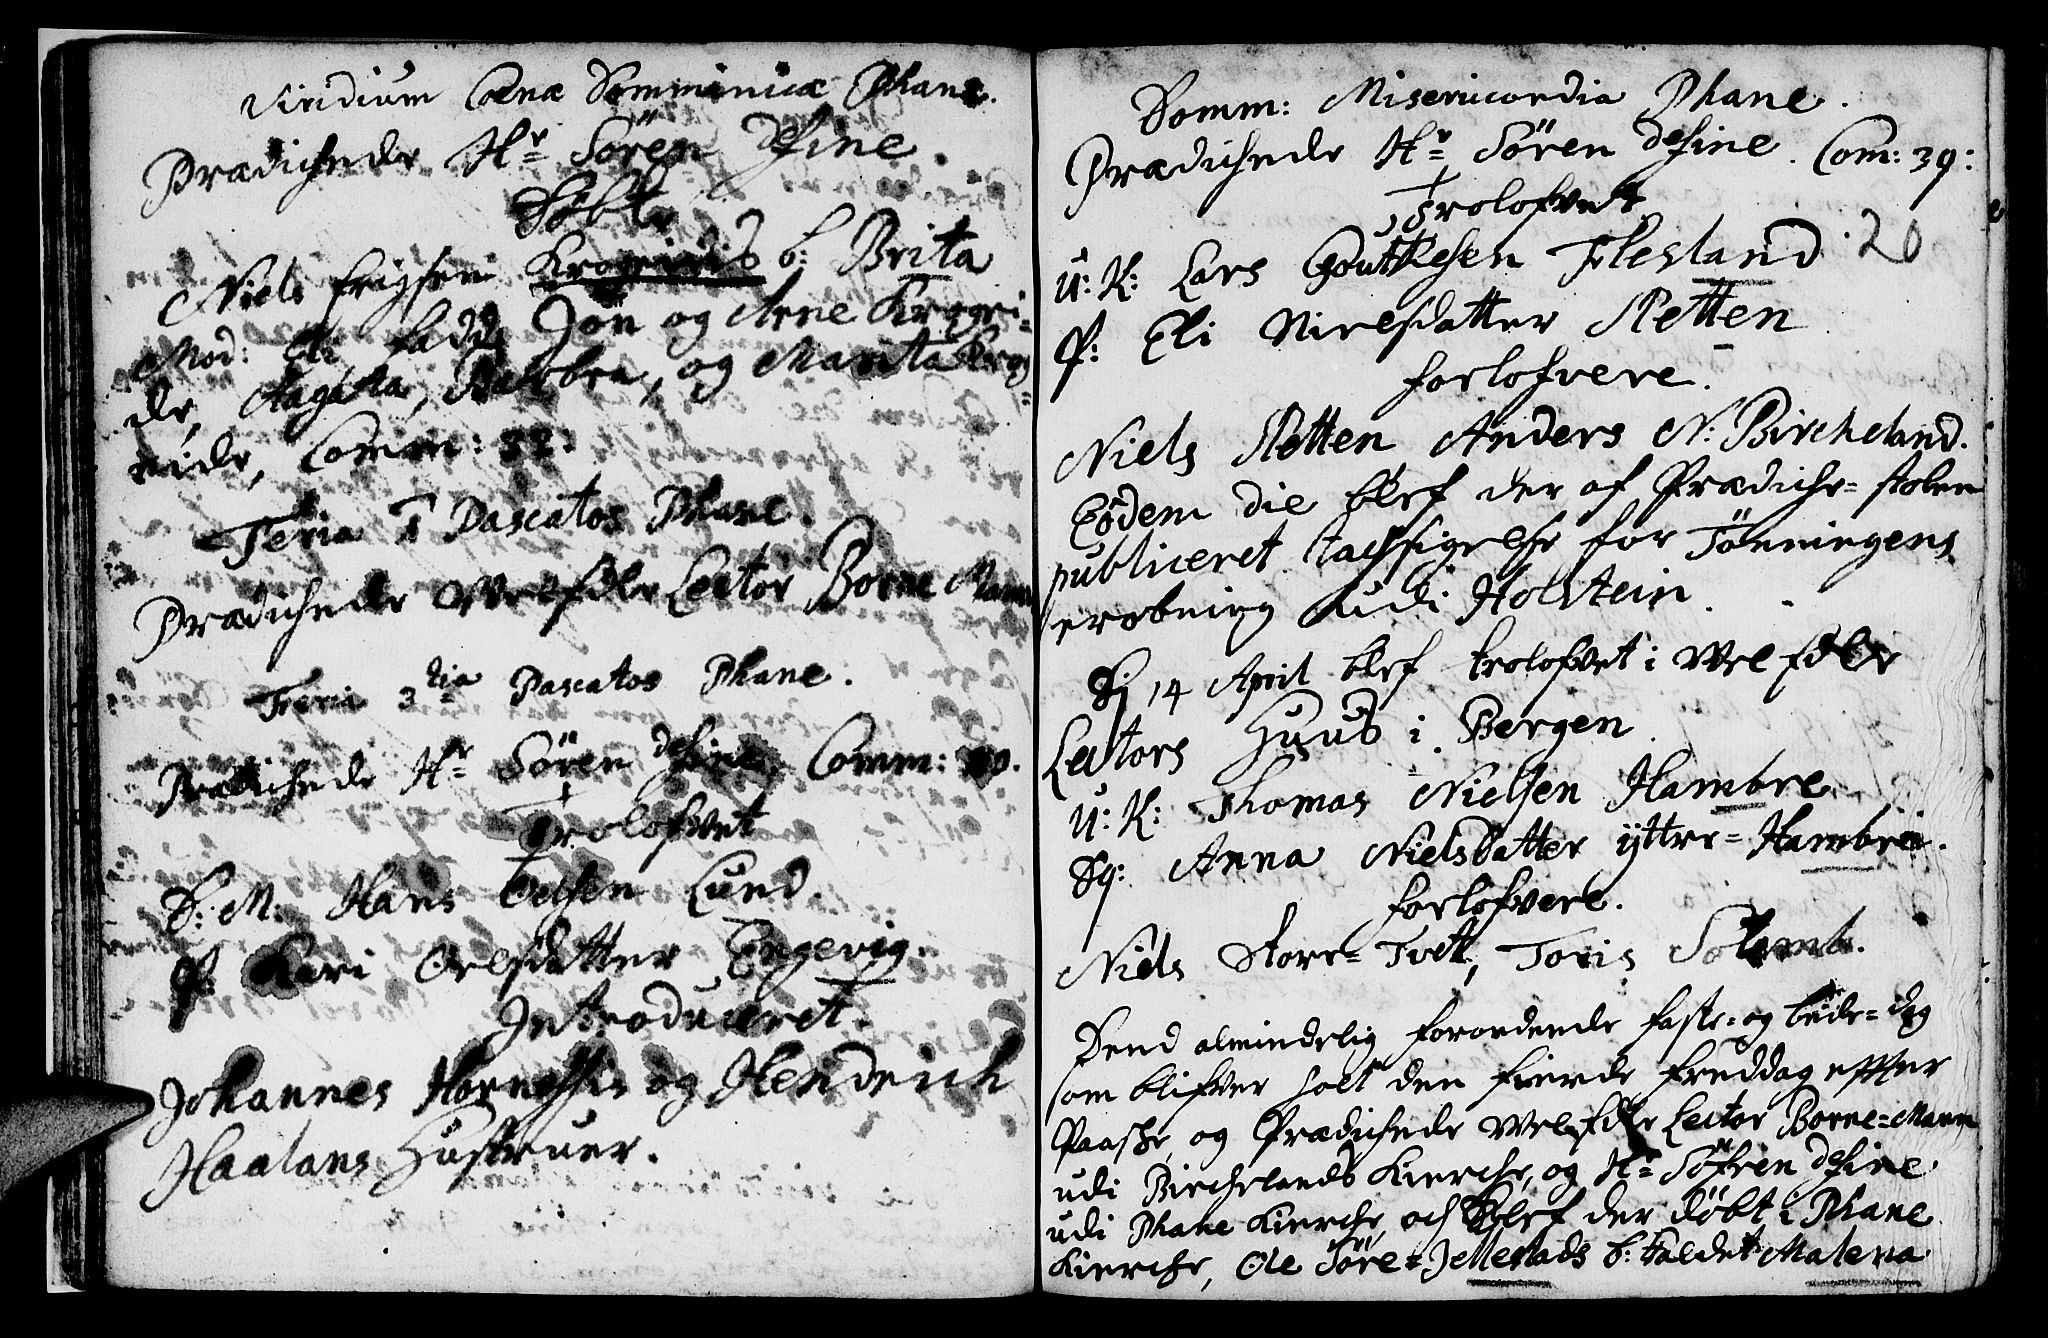 Viridium Coena Domminica Phane.
Prædichede Hr Søren desine.
Døbte
Niels Erigsen Krogeids b: Brita
Mod: Eli fadd: Jon og Arne Krogei=
de, Aagata, Barbra, og Marita Krog=
eide, Comm: 32:
Feria 1 Pascatos Phane.
Prædichede Welfdle Lector Borne Mann
Feria 3tia Pascatos Phane.
Prædichede Hr Søren desine. Comm: 30.
Trolofvet
D: M: Hans Oelsen Lund.
P: Kari Oelsdatter Engevig.
Introduceret.
Johannes og Hendrich
Haalans Hustruer.
Domm: Misericordia Phane.
Prædichede Hr Søren desine. Com: 39:
Trolofvet
20
U: K: Lars Goutesen Flesland
P: Eli Nielsdatter Retten
forlofvere.
Niels Retten Anders N: Bircheland.
Eodem die blef der af Prædiche=stolen
publiceret tachsigelse for Tønningens
erobning udi Holstein.
D: 14 April blef trolofvet i Welfdle
Lectors Huus i Bergen
U: K: Thomas Nielsen Hambre
Pg: Anna Nielsdatter ytter=Hambre.
forlofvere.
Niels Store=Tvet, Toris
Dend almindelig forordende faste=og bede=dag
som blifver holt den fierde freddag effter
Paaske, og Prædichede Welfdle Lector Borne=Mann
udi Birchelands Kierche, og Hr Søfren desine
udi Phane Kierche, och blef der døbt i Phane
Kierche, Ole Søre=Jellestads b: kaldet Malena